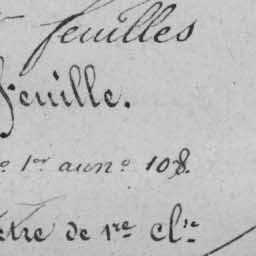 feuilles
feuille.
1er aun° 108.
tre de 1re cl.se